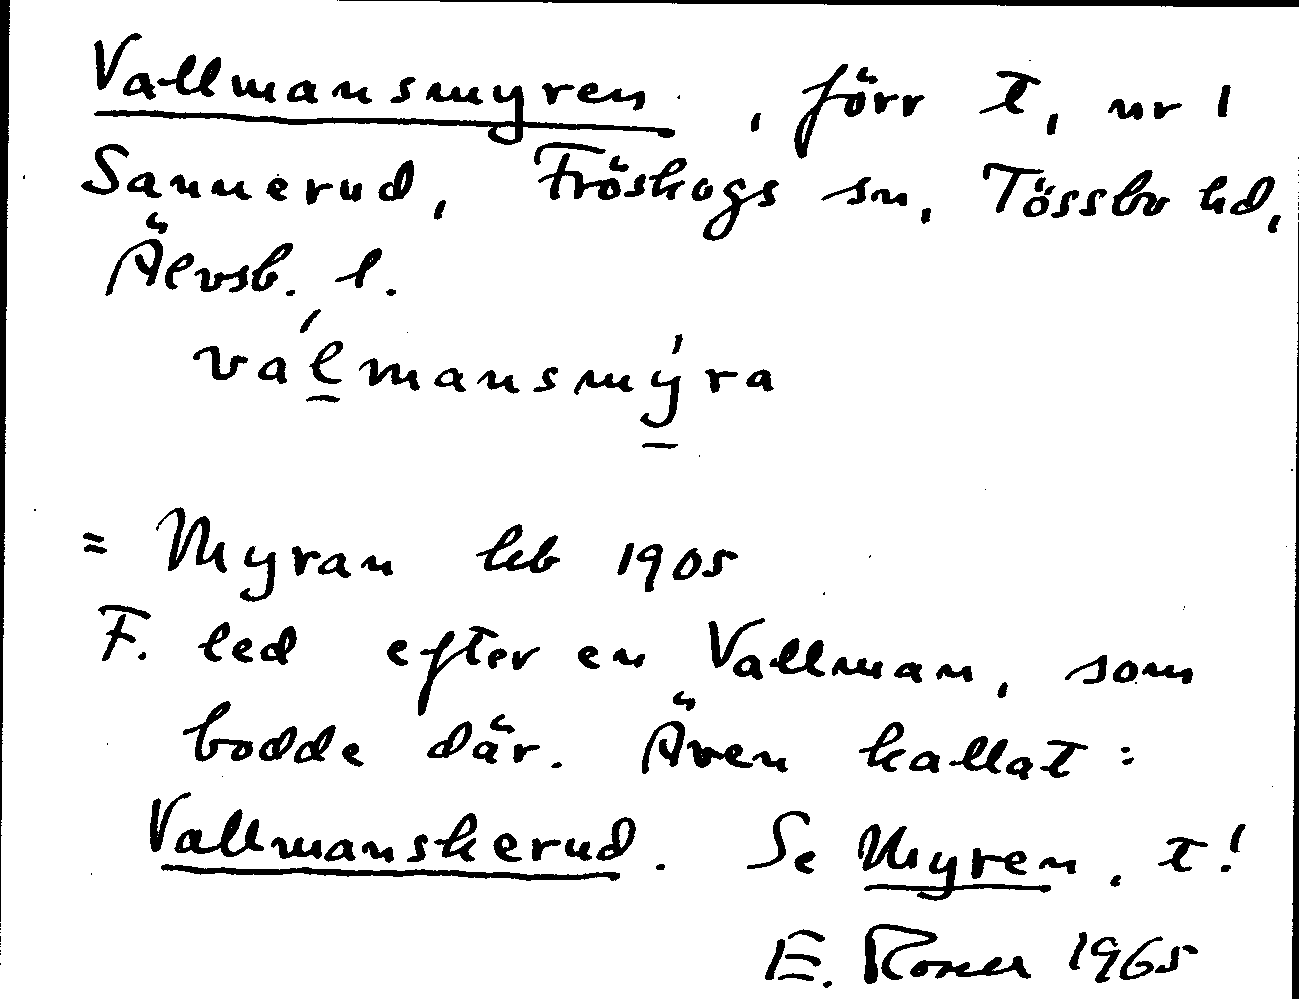 Vallmansmyren, förr t, nr 1
Sannerud, Fröskogs sn, Tössbo hd,
Älvsb. l.
válmansmýra
= Myran hb 1905
F. led efter en Vallman, som
bodde där. Även kallat:
Vallmanskerud. Se Myren, t!
E. 1965